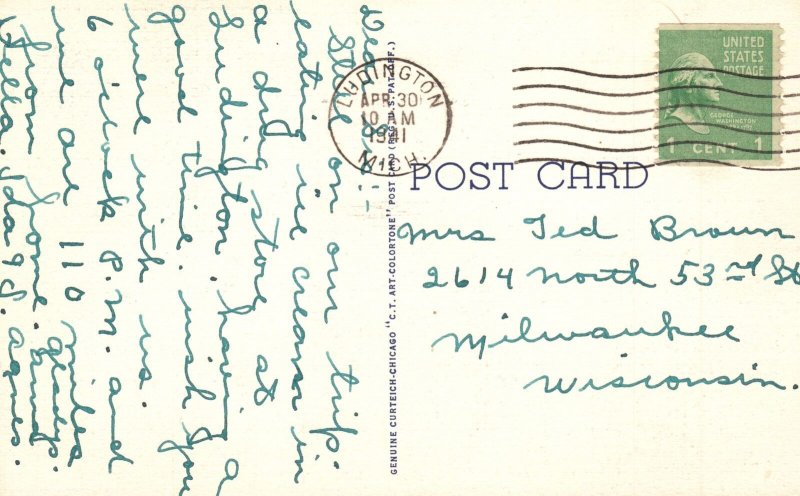 Dear Sis:-
Still on our trip.
eating ice cream in
a drug store at
Ludington. having a
good time. wish you
were with us.
6 o'clock P.M. and
we are 110 miles
from home.
Hella, Ida, & S. Agnes.
GENUINE CURTEICH-CHICAGO "C.T. ART-COLORTONE" POST CARD (REG. U.S. PAT. OFF.)
LUDINGTON
APR 30
10 AM
1941
MICH.
UNITED
STATES
POSTAGE
GEORGE
WASHINGTON
1 CENT 1
POST CARD
Mrs Ted Brown
2614 North 53rd St
Milwaukee
Wisconsin.